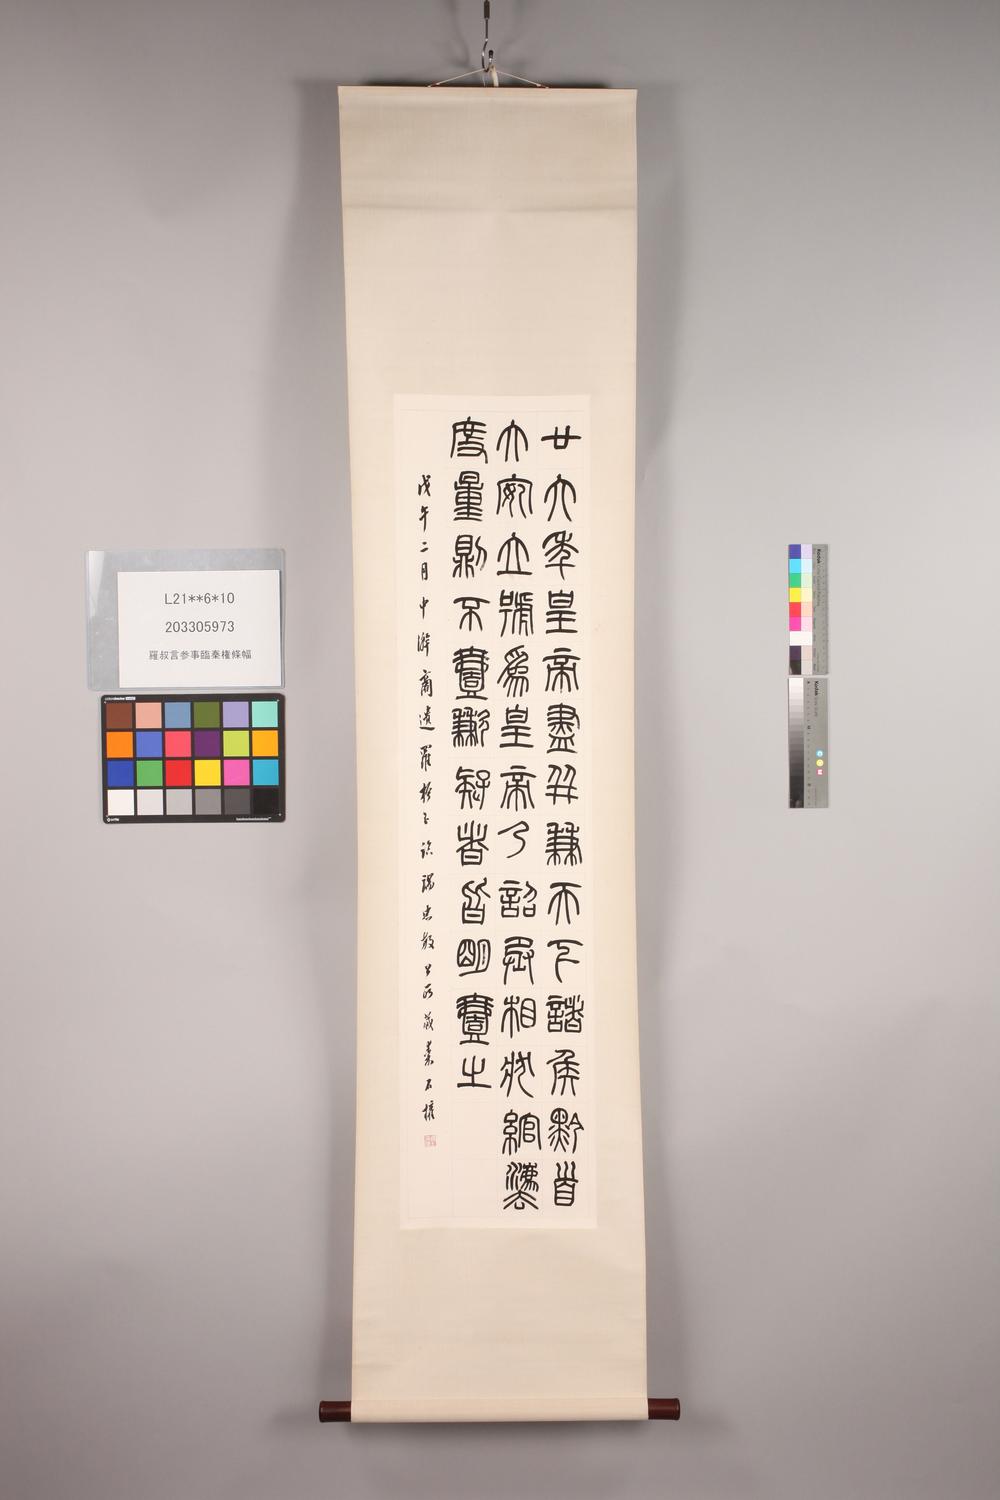 廿六年皇帝盡并兼天下諸侯黔首
大安立號爲皇帝乃詔丞相狀綰灋
度量則不壹歉疑者皆明壹之
戊午二月中澣商遺羅振玉臨端忠敏公所藏秦石權
L21**6*10
203305973
羅叔言参事臨秦權條幅
Kodak
Kodak